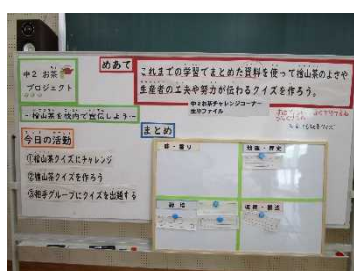 中2 お茶
プロジェクト
めあて
これまでの学習でまとめた資料を使って檜山茶のよさや
生産者の工夫や努力が伝わるクイズを作ろう。
中2お茶チャレンジコーナー
-檜山茶を校内で宣伝しよう-
まとめ
今日の活動
①檜山茶クイズにチャレンジ
②檜山茶クイズを作ろう
③相手グループにクイズを出題する
味・香り
地理・歴史
栽培
収穫・製法